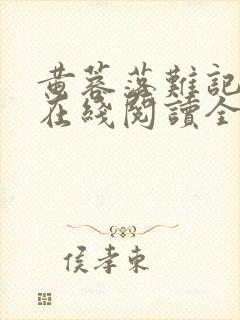 黄蓉落難記
在綫閱讀全
侯孝東